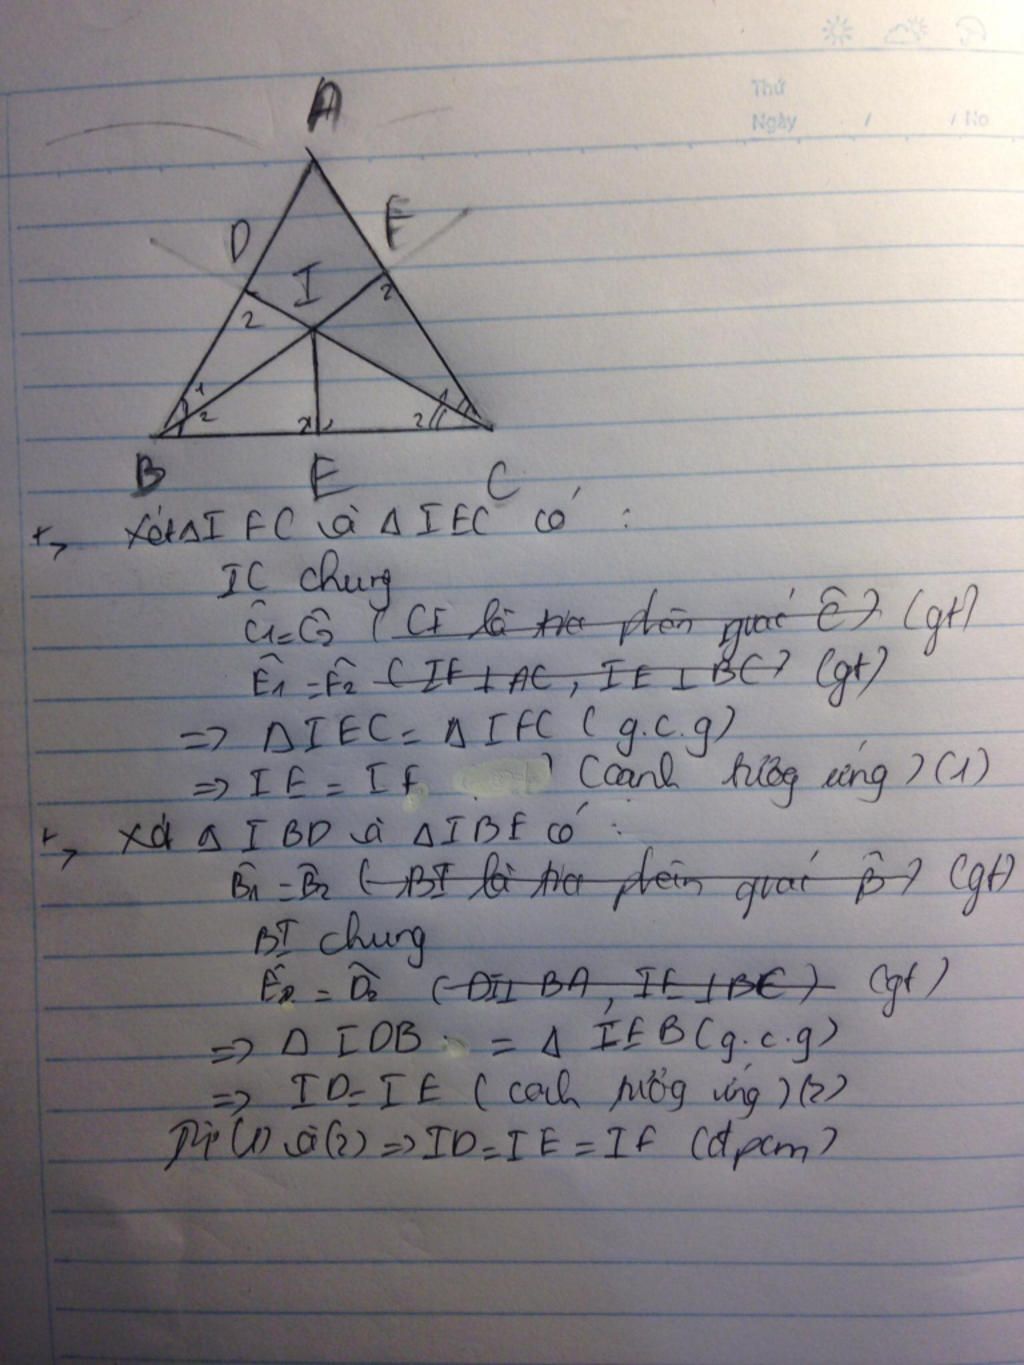 Thứ
Ngày / / No
A
D F
I
2 2
1 1
2 2 2
B E C
+, Xét Δ I F C và Δ I E C có :
IC chung
Ĉ1 = Ĉ2 ( CI là tia phân giác Ĉ ) (gt)
Ê1 = F̂2 ( IF ⊥ AC , IE ⊥ BC ) (gt)
=> Δ I E C = Δ I F C ( g.c.g )
=> I E = I F ) (cạnh tương ứng ) (1)
+, Xét Δ I B D và Δ I B E có :
B̂1 = B̂2 ( BI là tia phân giác B̂ ) (gt)
BI chung
Ê2 = D̂2 ( DI ⊥ BA , IE ⊥ BC ) (gt)
=> Δ I D B = Δ I E B ( g.c.g )
=> I D = I E ( cạnh tương ứng ) (2)
Từ (1) và (2) => I D = I E = I F (đpcm)